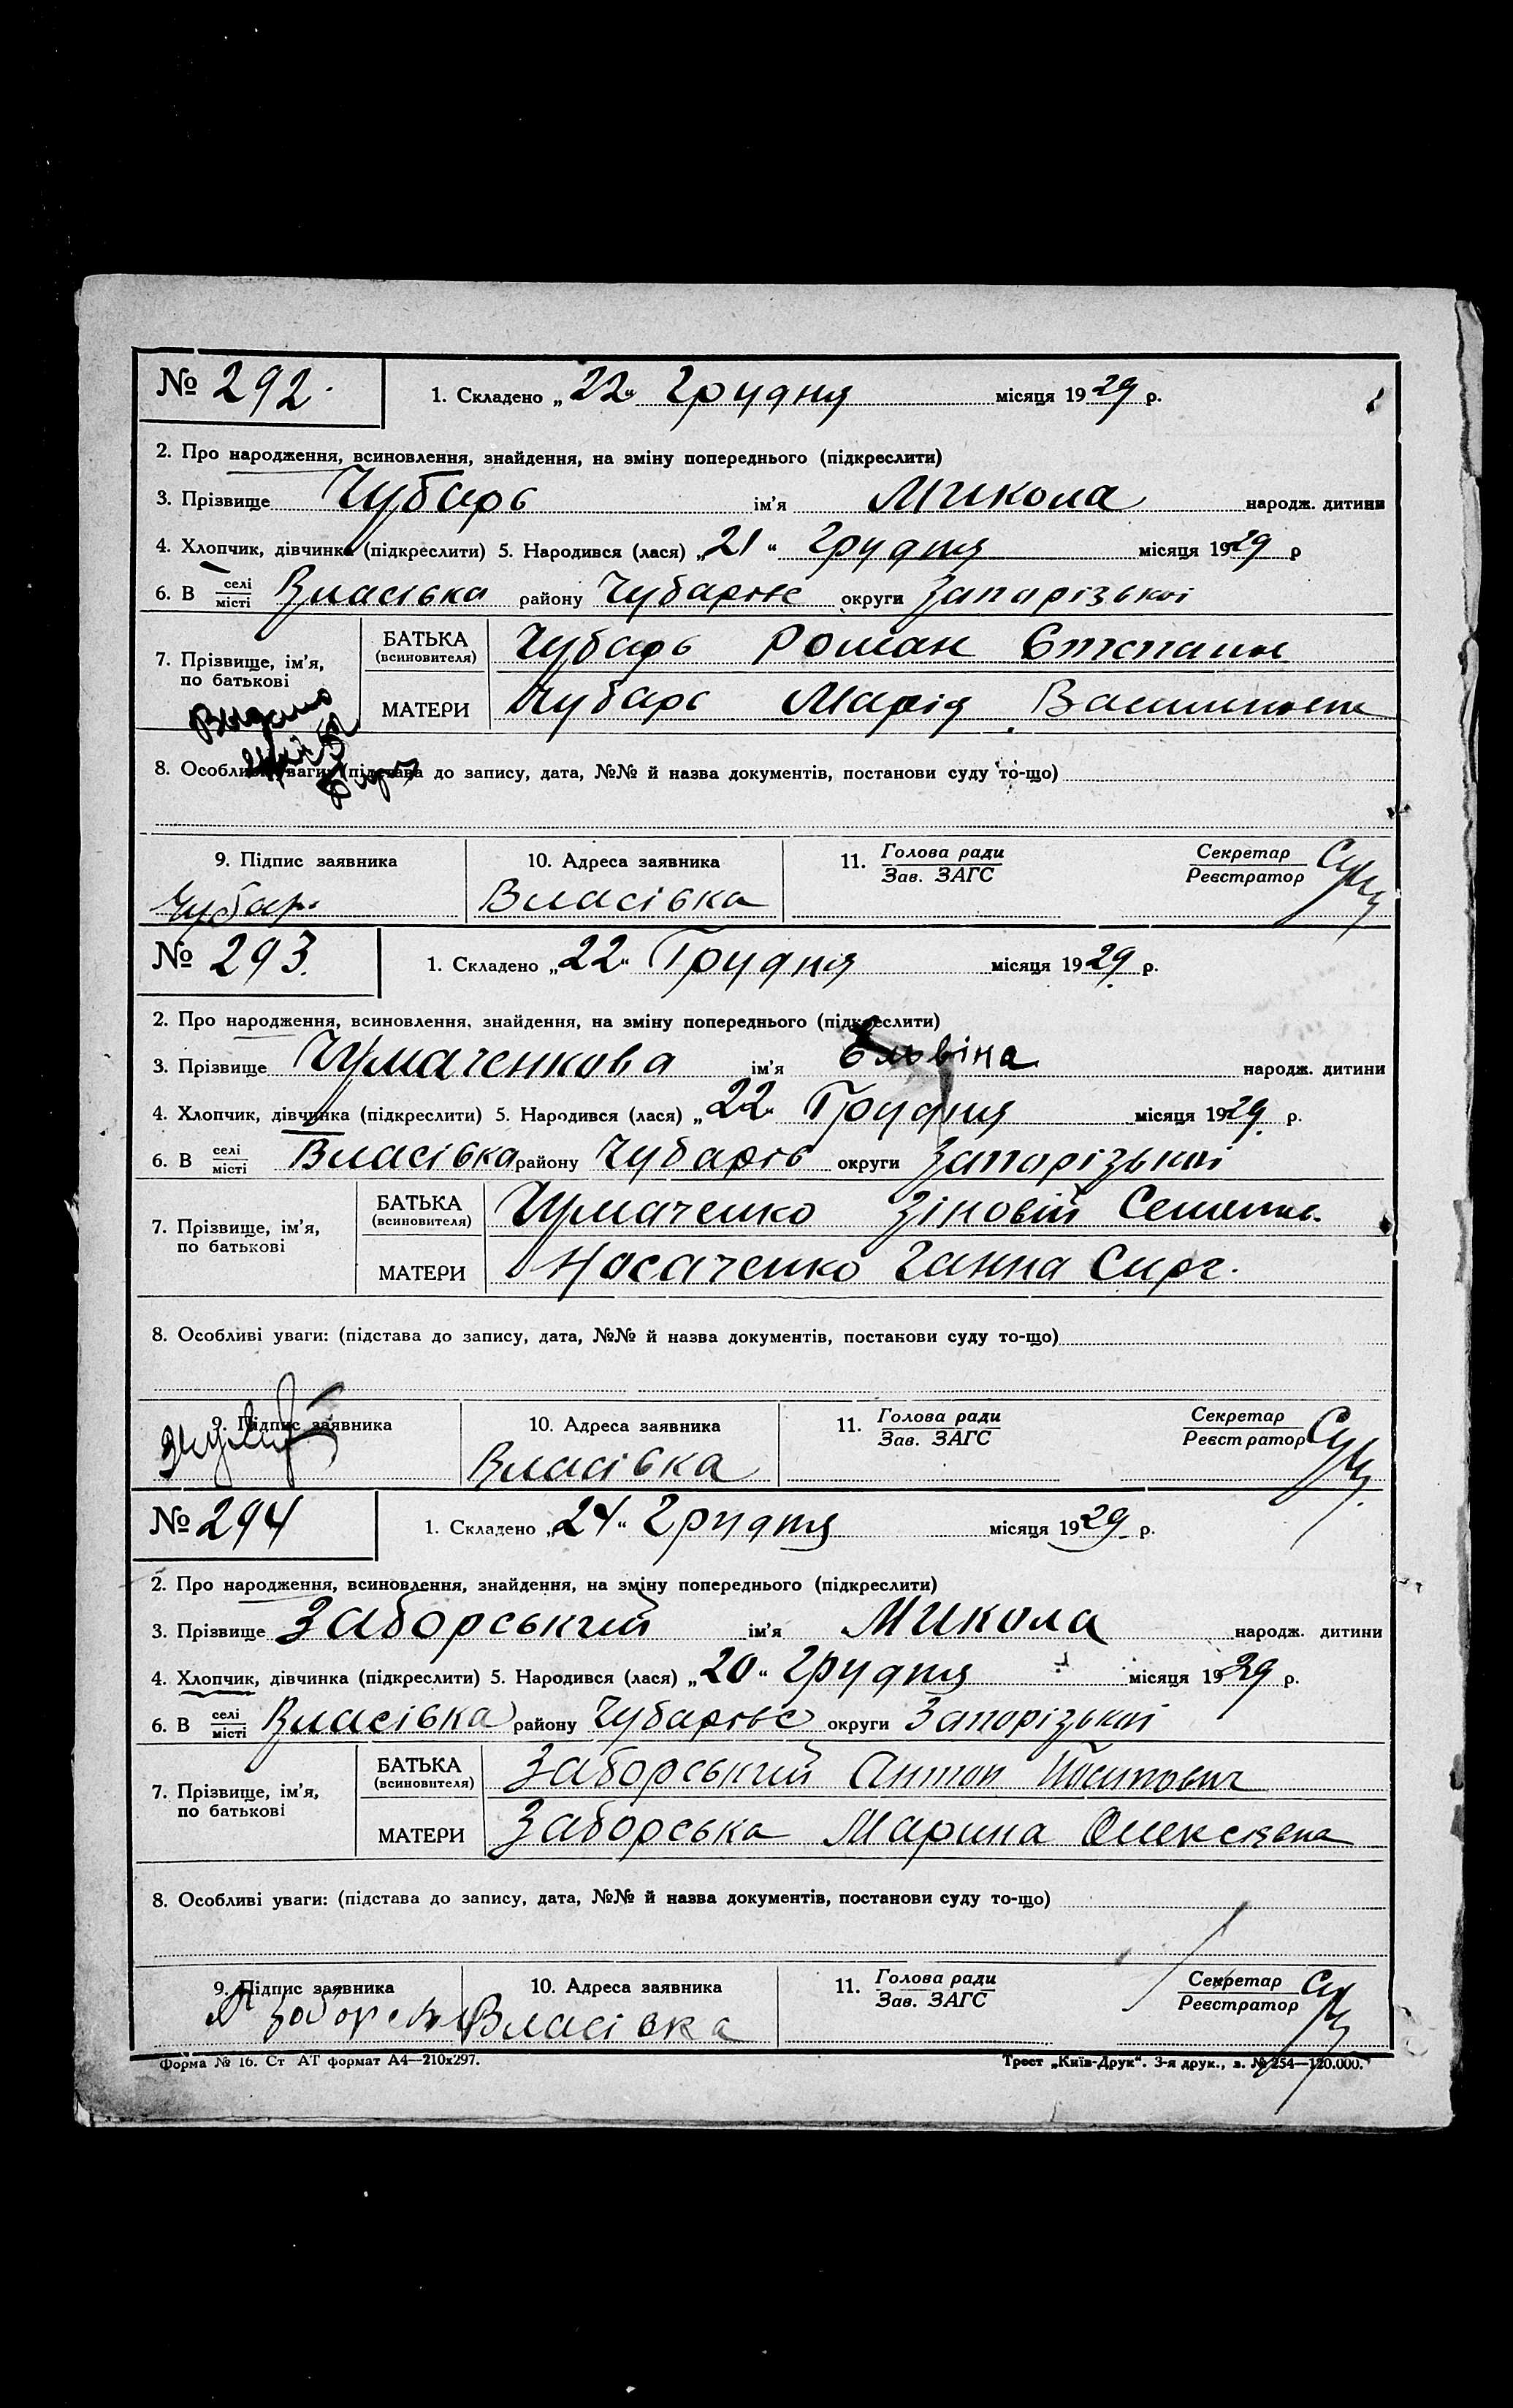 № 292. 1. Складено „22“ Грудня місяця 1929 р.
2. Про народження, всиновлення, знайдення, на зміну попереднього (підкреслити)
3. Прізвище Чубарь ім'я Микола народж. дитини
4. Хлопчик, дівчинка (підкреслити) 5. Народився (лася) „21“ Грудня місяця 1929 р
6. В селі місті Власівка району Чубарівс округи Запорізької
7. Прізвище, ім'я, по батькові
БАТЬКА (всиновителя) Чубарь Роман
МАТЕРИ Чубарь Марія
Видано
8. Особливі уваги: (підстава до запису, дата, №№ й назва документів, постанови суду то-що)
9. Підпис заявника 10. Адреса заявника 11. Голова ради Зав. ЗАГС Секретар Реєстратор
Чубар. Власівка
№ 293. 1. Складено „22“ Грудня місяця 1929 р.
2. Про народження, всиновлення, знайдення, на зміну попереднього (підкреслити)
3. Прізвище Чумаченкова ім'я народж. дитини
4. Хлопчик, дівчинка (підкреслити) 5. Народився (лася) „22“ Грудня місяця 1929 р.
6. В селі місті Власівка району Чубарів округи Запорізької
7. Прізвище, ім'я, по батькові
БАТЬКА (всиновителя) Чумаченко Зіновій
МАТЕРИ Носаченко Ганна Сирг.
8. Особливі уваги: (підстава до запису, дата, №№ й назва документів, постанови суду то-що)
9. Підпис заявника 10. Адреса заявника 11. Голова ради Зав. ЗАГС Секретар Реєстратор
Власівка
№ 294 1. Складено „24“ Грудня місяця 1929 р.
2. Про народження, всиновлення, знайдення, на зміну попереднього (підкреслити)
3. Прізвище Заборський ім'я Микола народж. дитини
4. Хлопчик, дівчинка (підкреслити) 5. Народився (лася) „20“ Грудня місяця 1929 р.
6. В селі місті Власівка району Чубарівс округи Запорізької
7. Прізвище, ім'я, по батькові
БАТЬКА (всиновителя) Заборський Антон Йосипович
МАТЕРИ Заборська Марина Олексіевна
8. Особливі уваги: (підстава до запису, дата, №№ й назва документів, постанови суду то-що)
9. Підпис заявника 10. Адреса заявника 11. Голова ради Зав. ЗАГС Секретар Реєстратор
Власівка
Форма № 16. Ст АТ формат А4—210х297. Трест „Київ-Друк“. 3-я друк., з. № 254—120.000.